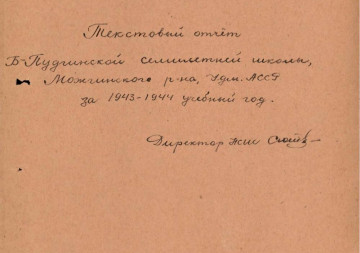 Текстовый отчёт
Б-Пудгинской семилетней школы,
Можгинского р-на, Удм. АССР
за 1943-1944 учебный год.
Директор